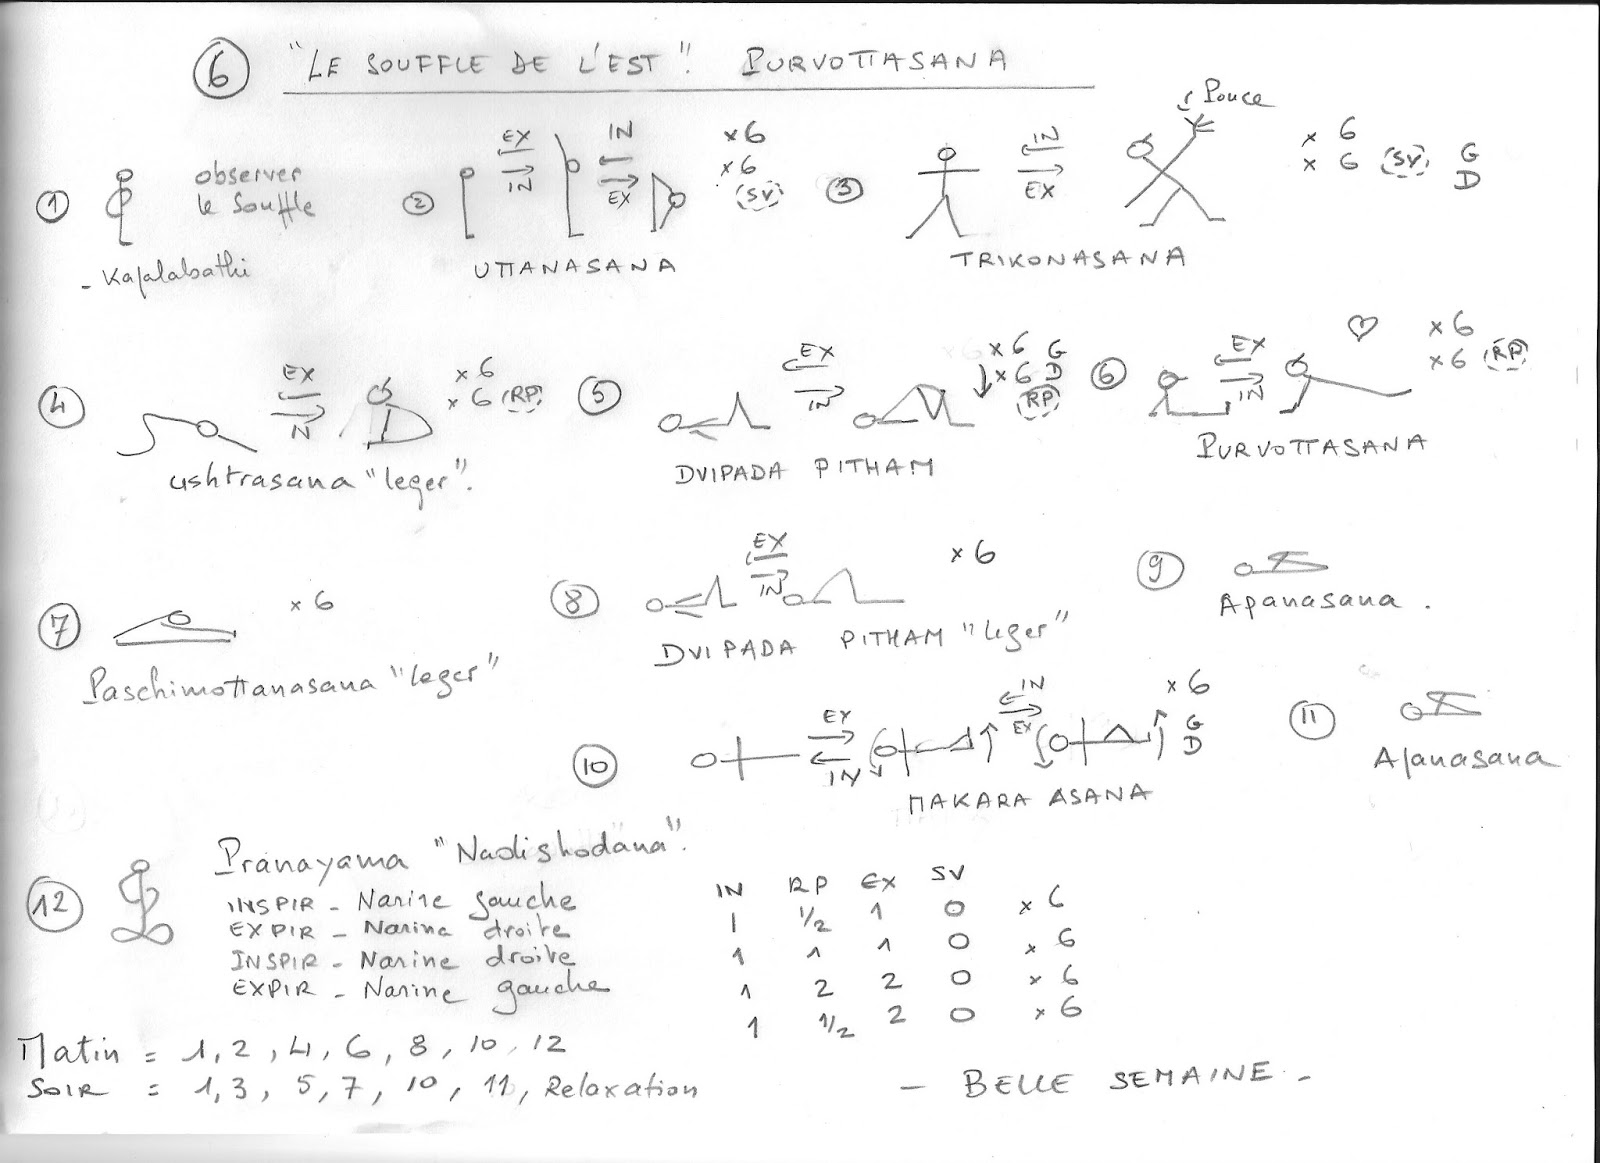 6 "LE SOUFFLE DE L'EST". PURVOTTASANA
1 observer
le souffle
- Kapalabathi
2 EX IN IN EX x6
x6
(SV)
UTTANASANA
3 IN EX Pouce x 6
x 6 (SV) G
D
TRIKONASANA
4 EX IN x6
x 6 (RP)
ushtrasana "leger".
5 EX IN x6 G
x6 D
(RP)
DVIPADA PITHAM
6 EX IN ♡ x6
x6 (RP)
PURVOTTASANA
7 x 6
Paschimottanasana "leger"
8 EX IN x6
DVIPADA PITHAM "leger"
9
Apanasana.
10 EX IN IN EX x6
G
D
MAKARA ASANA
11
Apanasana
12 Pranayama "Nadishodana".
INSPIR - Narine gauche
EXPIR - Narine droite
INSPIR - Narine droite
EXPIR - Narine gauche
IN RP EX SV
1 1/2 1 0 x 6
1 1 1 0 x 6
1 2 2 0 x 6
1 1/2 2 0 x 6
Matin = 1, 2, 4, 6, 8, 10, 12
SOIR = 1, 3, 5, 7, 10, 11, Relaxation
- BELLE SEMAINE -